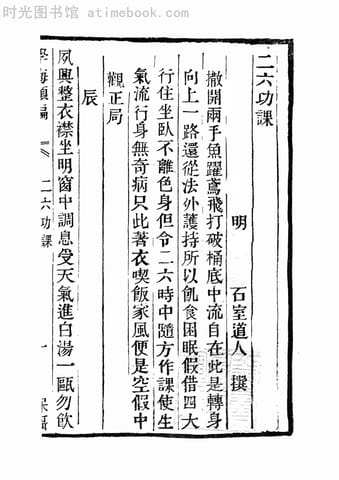 时光图书馆 www.atimebook.com
二六功課
明 石室道人 撰
撒開兩手魚躍鳶飛打破桶底中流自在此是轉身
向上一路還從法外護持所以飢食困眠假借四大
行住坐臥不離色身但令二六時中隨方作課使生
氣流行身無奇病只此著衣喫飯家風便是空假中
觀正局
辰
夙興整衣襟坐明窗中調息受天氣進白湯一甌勿飲
學海類編 二六功課 一